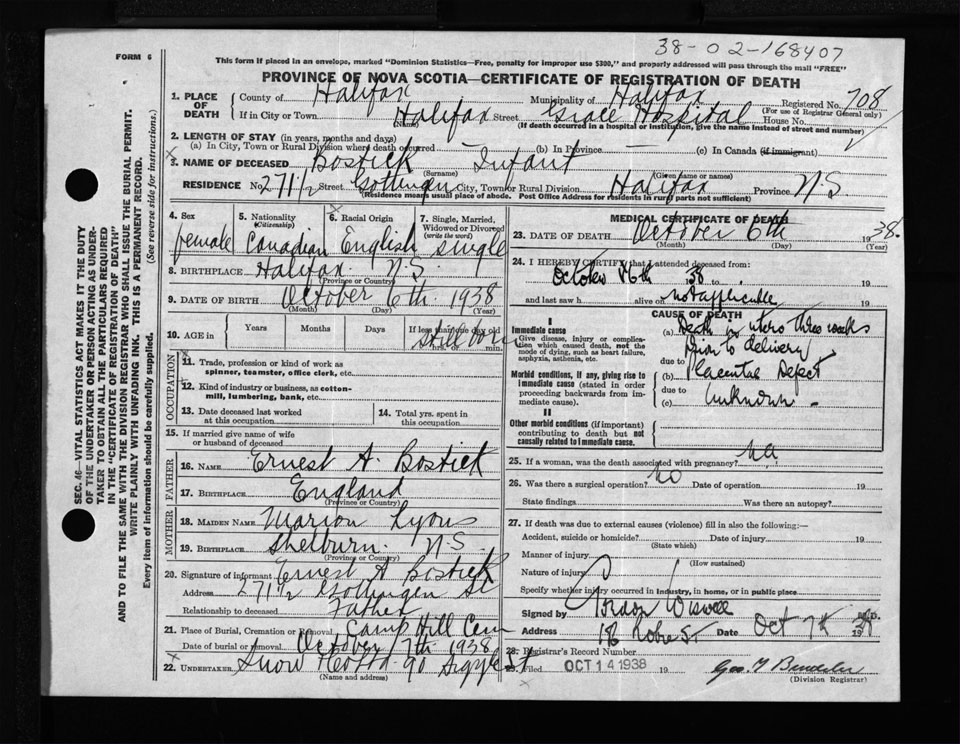 38-02-168407
FORM 6
This form if placed in an envelope, marked "Dominion Statistics—Free, penalty for improper use $300," and properly addressed will pass through the mail "FREE"
PROVINCE OF NOVA SCOTIA—CERTIFICATE OF REGISTRATION OF DEATH
1. PLACE OF DEATH County of Halifax Municipality of Halifax Registered No. 708
(For use of Registrar General only)
If in City or Town Halifax Street Grace Hospital House No.
(Name) (If death occurred in a hospital or institution, give the name instead of street and number)
2. LENGTH OF STAY (in years, months and days)
(a) In City, Town or Rural Division where death occurred (b) In Province — (c) In Canada (if immigrant)
3. NAME OF DECEASED Bostick Infant
(Surname) (Given name or names)
RESIDENCE No. 271 1/2 Street Gottingen City, Town or Rural Division Halifax Province N.S.
(Residence means usual place of abode. Post Office Address for residents in rural parts not sufficient)
4. Sex 5. Nationality (Citizenship) 6. Racial Origin 7. Single, Married, Widowed or Divorced (write the word)
female Canadian English single
8. BIRTHPLACE Halifax N.S.
(Province or Country)
9. DATE OF BIRTH October 6th 1938
(Month) (Day) (Year)
10. AGE in Years Months Days If less than one day old
Still born
hrs. or min.
OCCUPATION
11. Trade, profession or kind of work as spinner, teamster, office clerk, etc.
12. Kind of industry or business, as cotton-mill, lumbering, bank, etc.
13. Date deceased last worked at this occupation
14. Total yrs. spent in this occupation
15. If married give name of wife or husband of deceased
FATHER
16. NAME Ernest A. Bostick
17. BIRTHPLACE England
(Province or Country)
MOTHER
18. MAIDEN NAME Marion Lyons
19. BIRTHPLACE Shelburn N.S.
(Province or Country)
20. Signature of informant Ernest A Bostick
Address 271 1/2 Gottingen St
Relationship to deceased Father
21. Place of Burial, Cremation or Removal Camp Hill Cem
Date of burial or removal October 7th 1938
22. UNDERTAKER Snow 90 Argyle St
(Name and address)
MEDICAL CERTIFICATE OF DEATH
23. DATE OF DEATH October 6th 1938.
(Month) (Day) (Year)
24. I HEREBY CERTIFY that I attended deceased from:
October 6th 38 to 19
and last saw h alive on not applicable 19
CAUSE OF DEATH
I
Immediate cause
Give disease, injury or complication which caused death, not the mode of dying, such as heart failure, asphyxia, asthenia, etc.
(a) Death in utero three weeks
prior to delivery
due to
Morbid conditions, if any, giving rise to immediate cause (stated in order proceeding backwards from immediate cause).
(b) Placental Defect
due to
(c) Unknown -
II
Other morbid conditions (if important) contributing to death but not causally related to immediate cause.
25. If a woman, was the death associated with pregnancy? na
26. Was there a surgical operation? no Date of operation 19
State findings Was there an autopsy?
27. If death was due to external causes (violence) fill in also the following:—
Accident, suicide or homicide? Date of injury 19
(State which)
Manner of injury
(How sustained)
Nature of injury
Specify whether injury occurred in industry, in home, or in public place
Signed by Gordon Wiswell M.D.
Address 196 Robie St. Date Oct 7th 1938
28. Registrar's Record Number
29. Filed OCT 14 1938 19
(Division Registrar)
SEC. 46—VITAL STATISTICS ACT MAKES IT THE DUTY
OF THE UNDERTAKER OR PERSON ACTING AS UNDER-
TAKER TO OBTAIN ALL THE PARTICULARS REQUIRED
IN THE "CERTIFICATE OF REGISTRATION OF DEATH"
AND TO FILE THE SAME WITH THE DIVISION REGISTRAR WHO SHALL ISSUE THE BURIAL PERMIT.
WRITE PLAINLY WITH UNFADING INK. THIS IS A PERMANENT RECORD.
Every item of information should be carefully supplied. (See reverse side for instructions.)